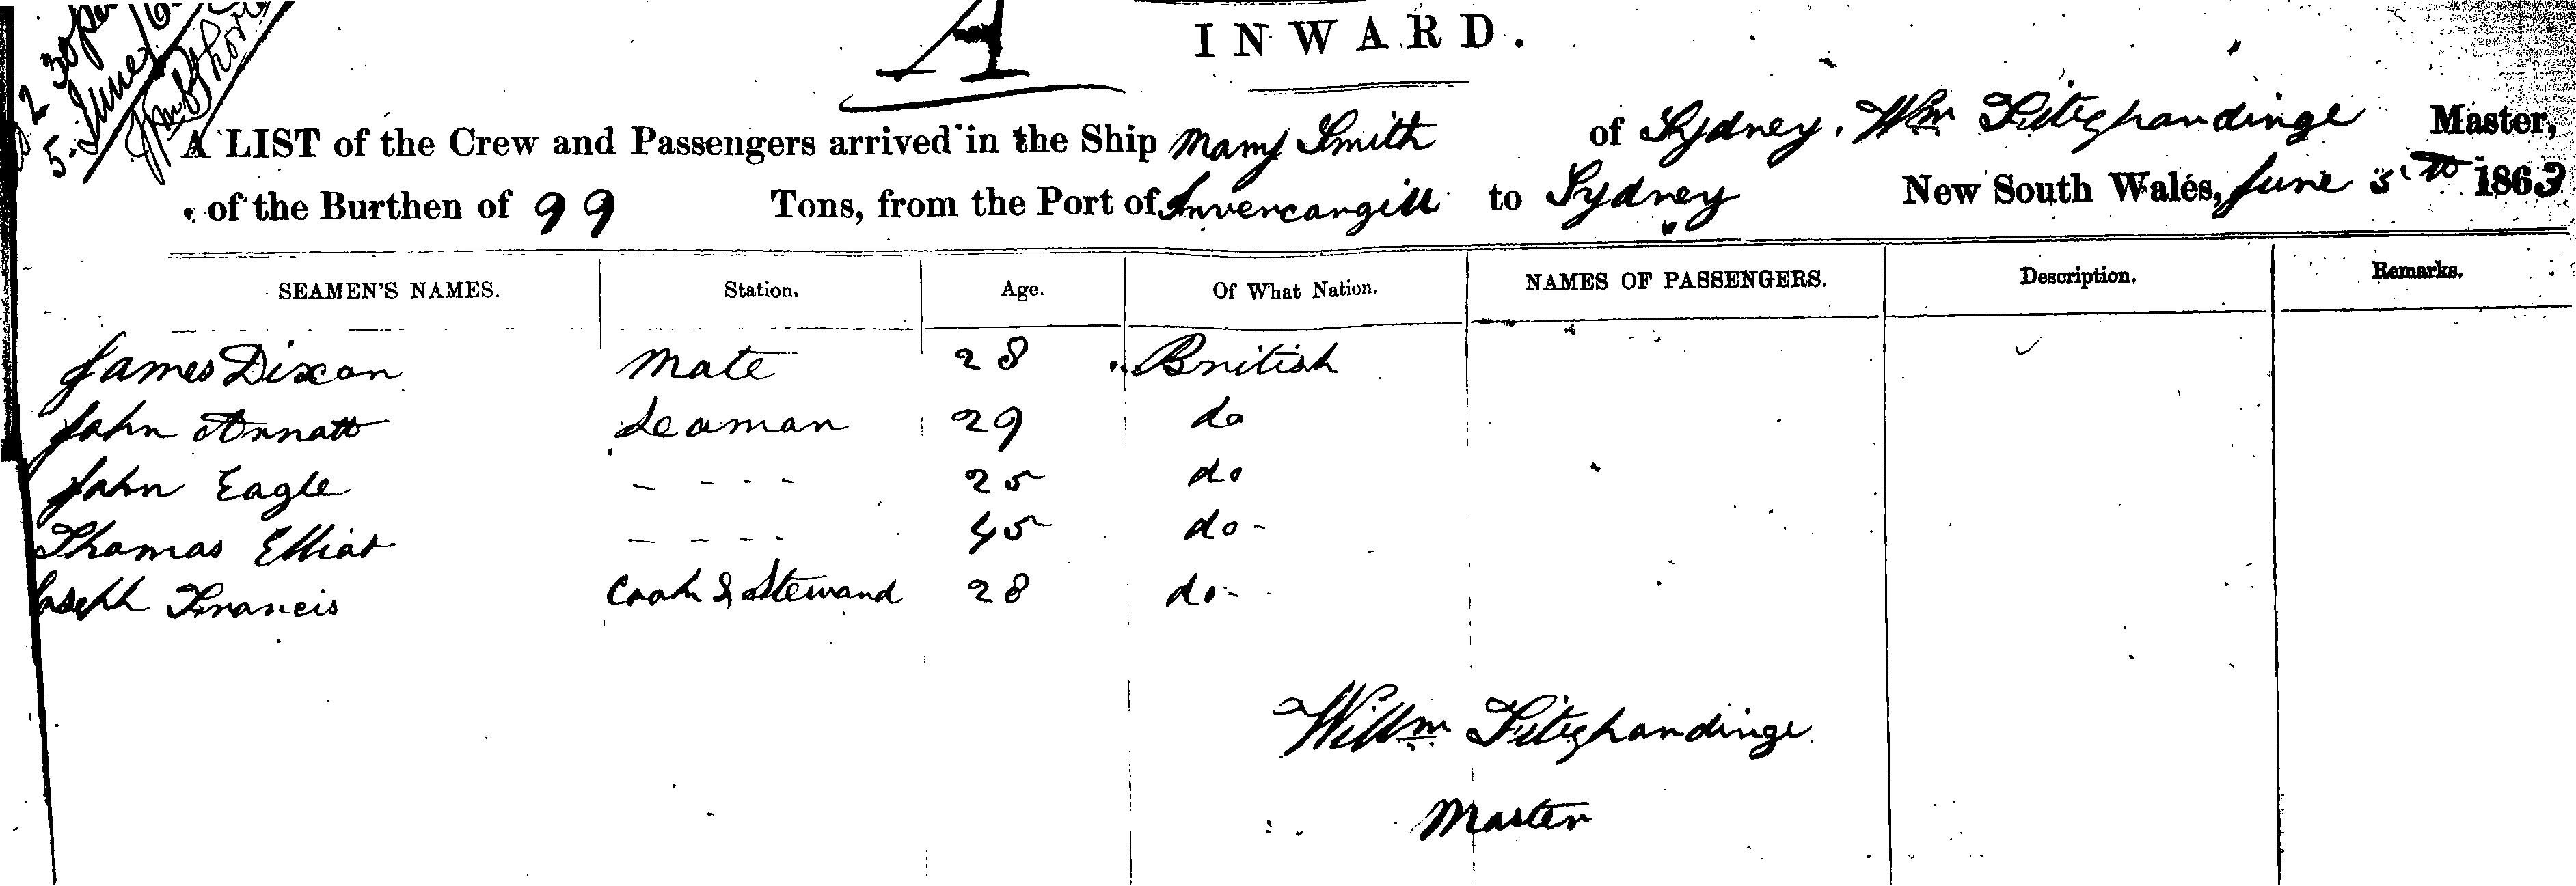 2 30 pm
5 June/6
A
INWARD.
A LIST of the Crew and Passengers arrived in the Ship Mary Smith of Sydney, Wm Fitzhardinge Master,
of the Burthen of 99 Tons, from the Port of Invercargill to Sydney New South Wales, June 5th 1863
SEAMEN'S NAMES. Station. Age. Of What Nation. NAMES OF PASSENGERS. Description. Remarks.
James Dixon Mate 28 British
John Annatt Seaman 29 do
John Eagle - - - - 25 do
Thomas Elliot - - - - 45 do -
Joseph Francis Cook & Steward 28 do -
Willm Fitzhardinge
Master